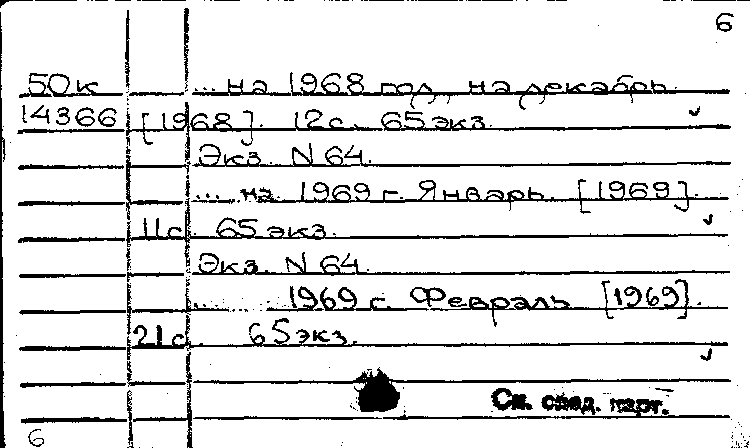 6
50к ... на 1968 год, на декабрь.
14366 [1968]. 12с. 65экз.
Экз. N 64.
... на 1969 г. Январь. [1969].
11с. 65 экз.
Экз. N 64.
... 1969 г. Февраль [1969].
21с. 65экз.
См. след. карт.
6